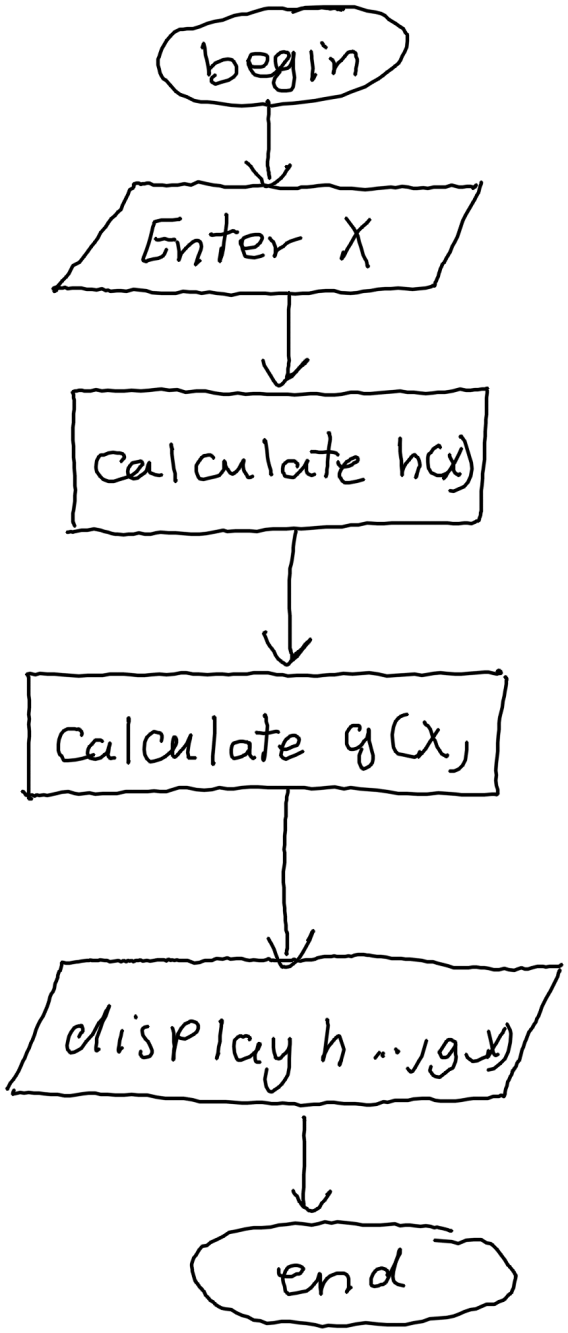 begin
Enter X
calculate h(x)
calculate g(x)
display h ..., g x)
end